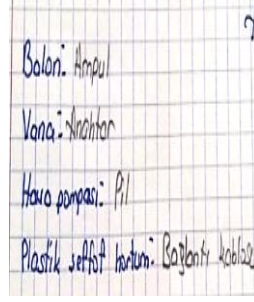 Balon: Ampul
Vana: Anahtar
Hava pompası: Pil
Plastik şeffaf hortum: Bağlantı kablosu